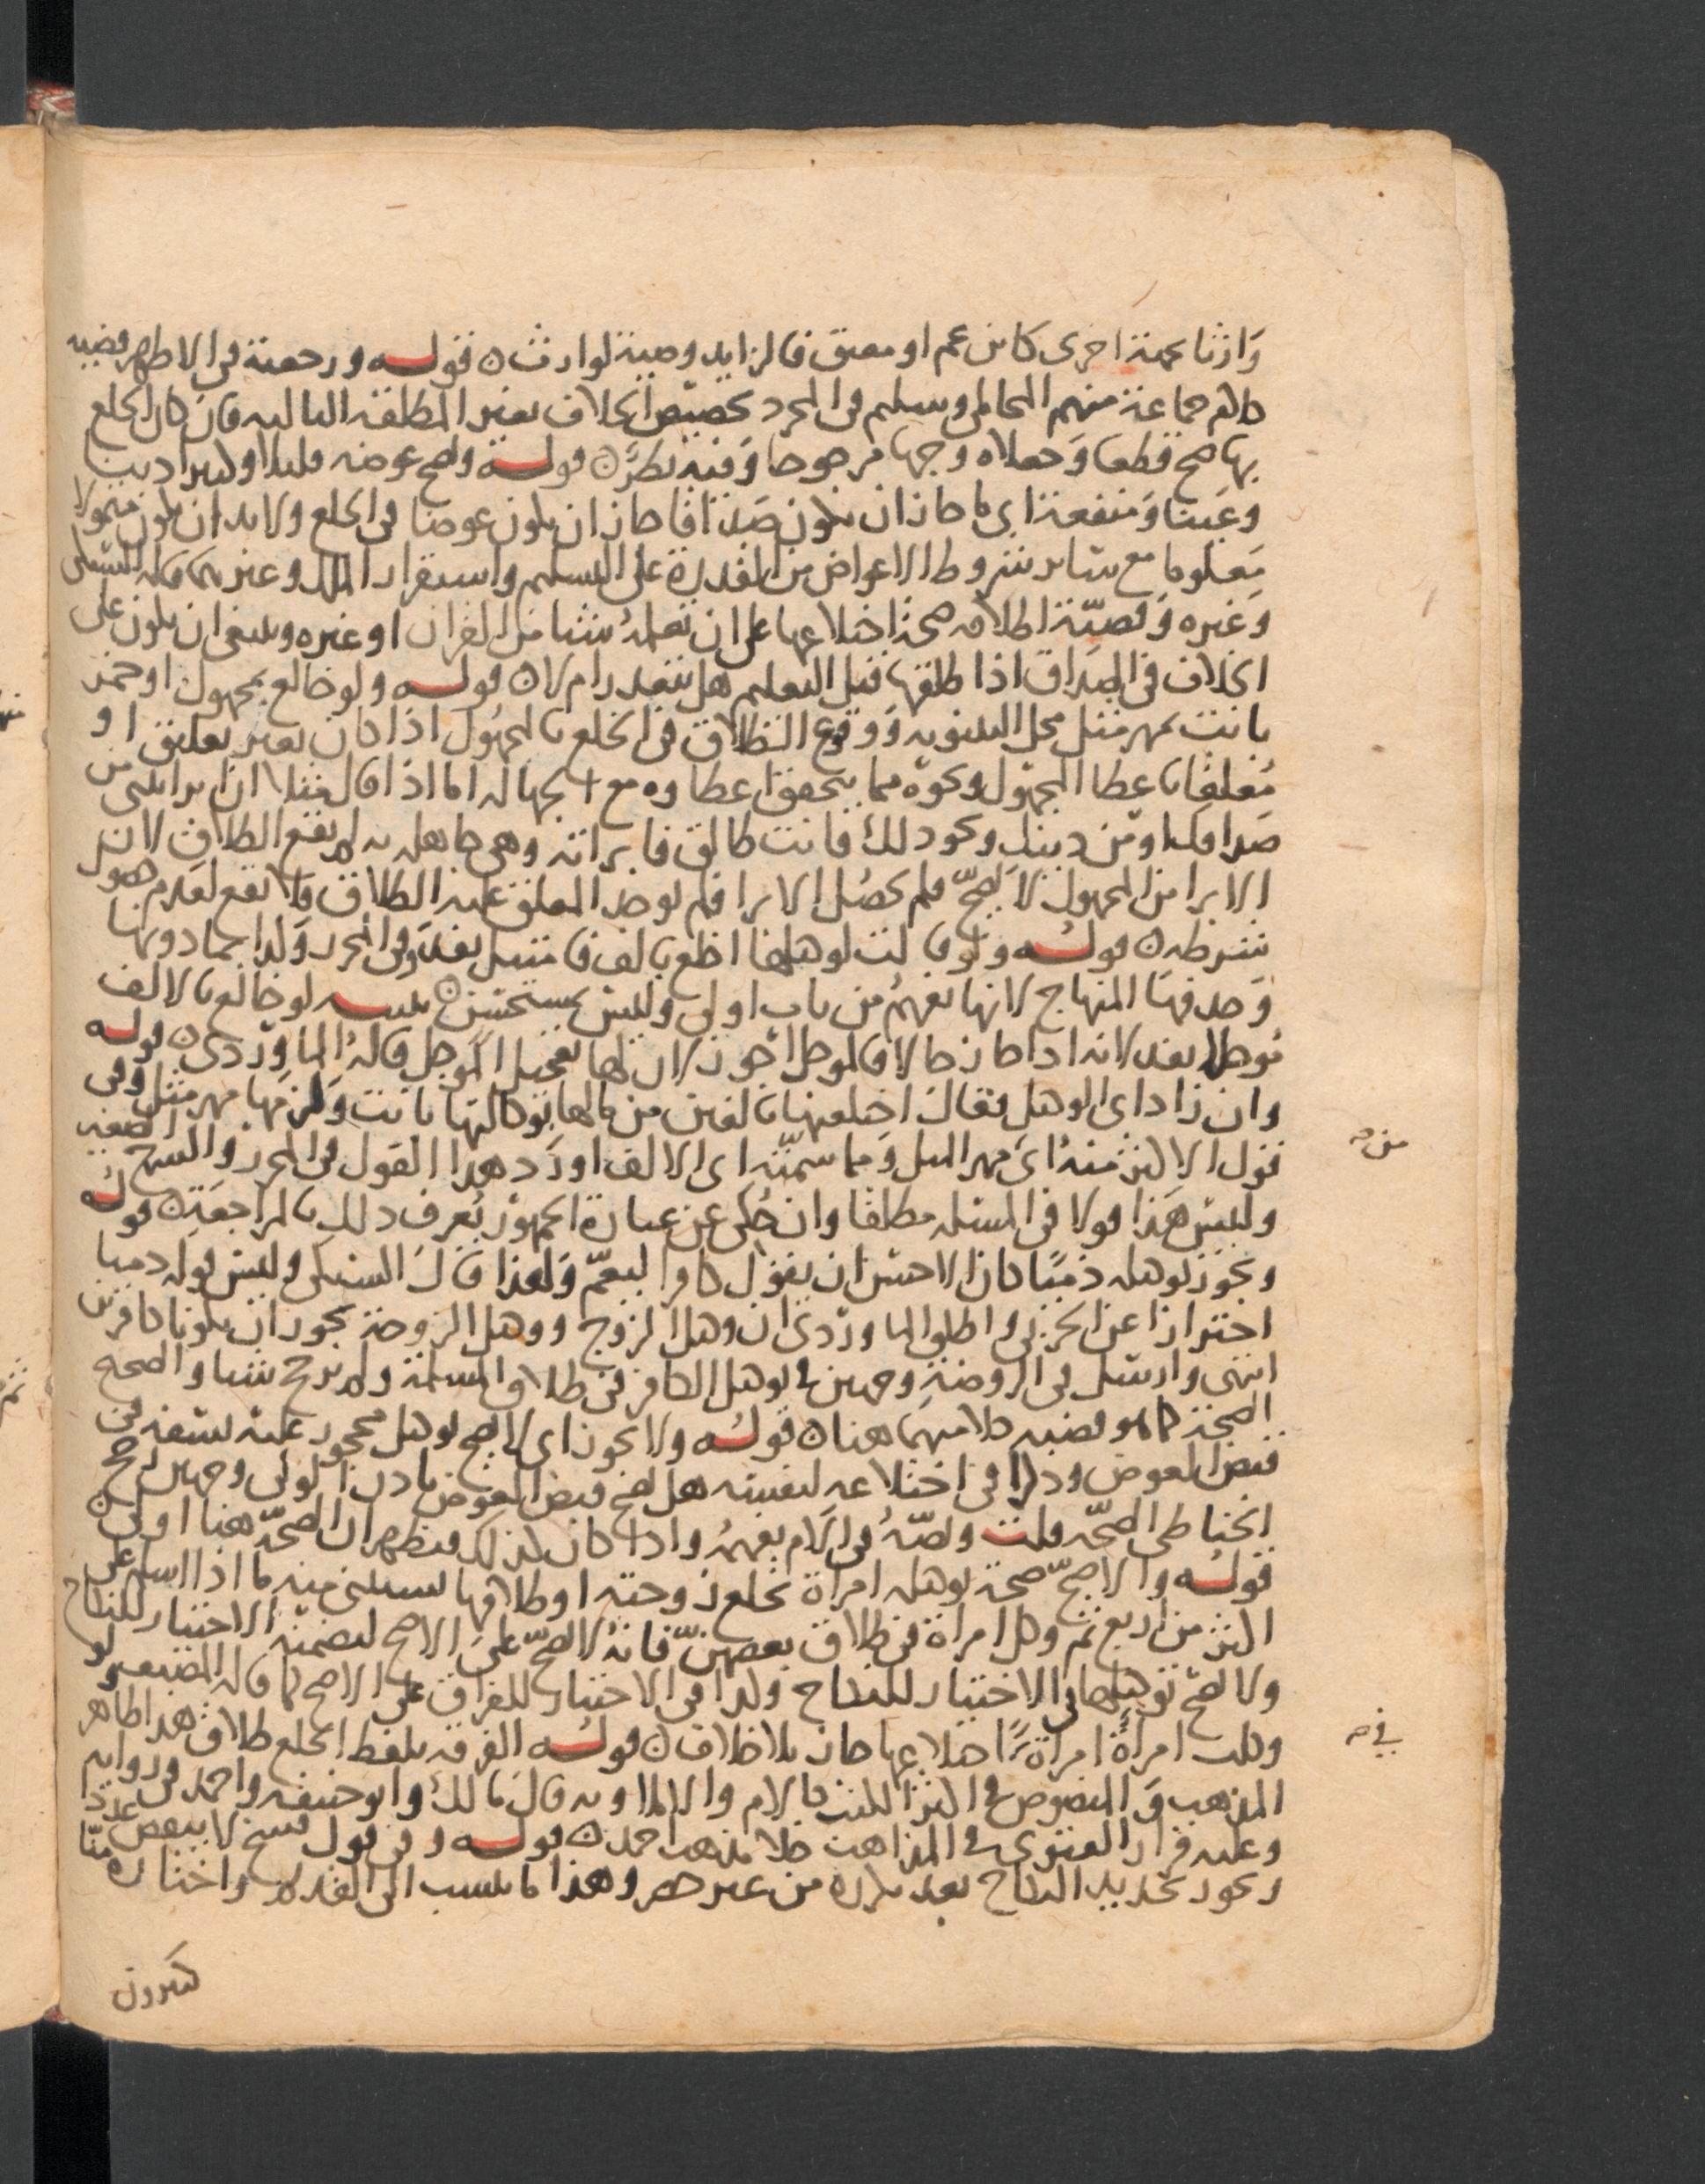 وَارثا بجهة اخرى كابن عم او معتق فالزايد وصية لوارث ن قوله ورجعية في الاظهر قضيه
كلام جماعة منهم المحاملي وسليم في المجرد تخصيص الخلاف بغير المطلقة الثالثه فان كان الخلع
بها صح قطعا وَجعلاه وجها مرجوحا وَفيه نظر ن قوله ويصح عوضه قليلا وكثيرا دينا
وعَينا وَمنفعة اي ما جاز ان يكون صَداقا جاز ان يكون عوضا في الخلع ولا بد ان يكون متمولا
مَعلوما مع سَاير شروط الاعواض من القدرة على التسليم واستقرار الملك وغير ذلك كما قاله السبكي
وَغيره وَقضيّة اطلاقه صحة اختلاعها على ان تعلمه شيئا من القران او غيره وينبغي ان يكون على
الخلاف في الصَداق اذا طلقها قبل التعليم هل يتعذر ام لا ن قوله ولو خالع بمجهول او خمر
بانت بمهر مثل محل البينونه وَوقوع الطلاق في الخلع بالمجهُول اذا كان بغير تعليق او
مُعلقا باعطا المجهول ونحوه مما يتحقق اعطاوه مع الجهاله اما اذا قال مثلا ان ابراتني من
صَداقك او من دينك ونحو ذلك فانت طالق فابراته وهي جاهله به لم يقع الطلاق لان
الابرا من المجهول لا يَصحّ فلم يحصُل الابرا فلم يوجد المعلق عليه الطلاق فلا يقع لعدم حصول
شرطه ن قوله ولو قالت لوكيلها اختلع بالف فامتثل نفذ وفي المحرر وَكذا بما دونها
وَحذفهَا المنهاج لانها تفهمُ من باب اولى وليس بمستحسَن ن تنبيه لو خالع بالالف
مُوجلا نفذ لانه اذا جاز حالا فالموجل اجوز لان لها تعجيل الموجل قالهُ الماوَردي ن قوله
وان زاد اي الوكيل فقال اختلعتها بالفين من مالها بوكالتها بانت وَلزمَها مهر مثل وفي
قول الاكثر منهُ اي مهر المثل وَمما سمّته اي الالف اورَد هذا القول في المحرر والشرح الصغير
وليسَ هَذا قولا في المسئله مطلقا وان حُكي عن عبارة الجمهور يُعرف ذلك بالمراجعَة ن قوله
ويجوز توكيله ذميًا كان الاحسَن ان يقول كافرا ليعمّ وَلهذا قال السبكي وليسَ قوله ذميا
احترازا عن الحربي واطلق الماوردي ان وكيل الزوج ووكيل الزوجة يجوز ان يكونا كافرين
انتهى وارسَل في الروضَة وجهين في توكيل الكافر في طلاق المسلمة ولم يرجح شيئا والصحيح
الصحة كما هو قضيه كلامهما هنا ن قوله ولا يجوز اي لا يصح توكيل محجور عليه بسَفه في
قبض العوض وذكرا في اختلاعه لنفسه هل يصح قبض العوض باذن الولي وجهين رجح
الحناطي الصحّه قلت ونصّهُ في الام يفهمهُ واذا كان كذلك فيظهر ان الصحّة هنا اولى ن
قوله والاصحّ صحة توكيله امراة بخلع زوجته او طلاقها يستثنى منه ما اذا اسلم على
اكثر من اربع ثم وكل امراة في طلاق بعضهنّ فانهُ لا يصحّ على الاصح لتضمنه الاختيار للنكاح
ولا يصحّ توكيلها في الاختيار للنكاح وكذا في الاختيار للفراق على الاصح كما قاله المصنف ولو
وكلت امراةٌ امراةً باختلاعها جاز بلا خلاف ن قوله الفرقه بلفظ الخلع طلاق هذا ظاهر
المذهب وَالمنصوص في اكثر الكتب كالام والاملا وبه قال مالك وابو حنيفه واحمد في روايه
وعليه قرار الفتوى في المذاهب خلا مذهب احمد ن قوله وفي قول فسخ لا ينقص عددًا
ويجوز تجديد النكاح بعد تكرره من غير حصر وهذا ما ينسب الى القديم واختاره منّا
كثيرون
من صح
في صح